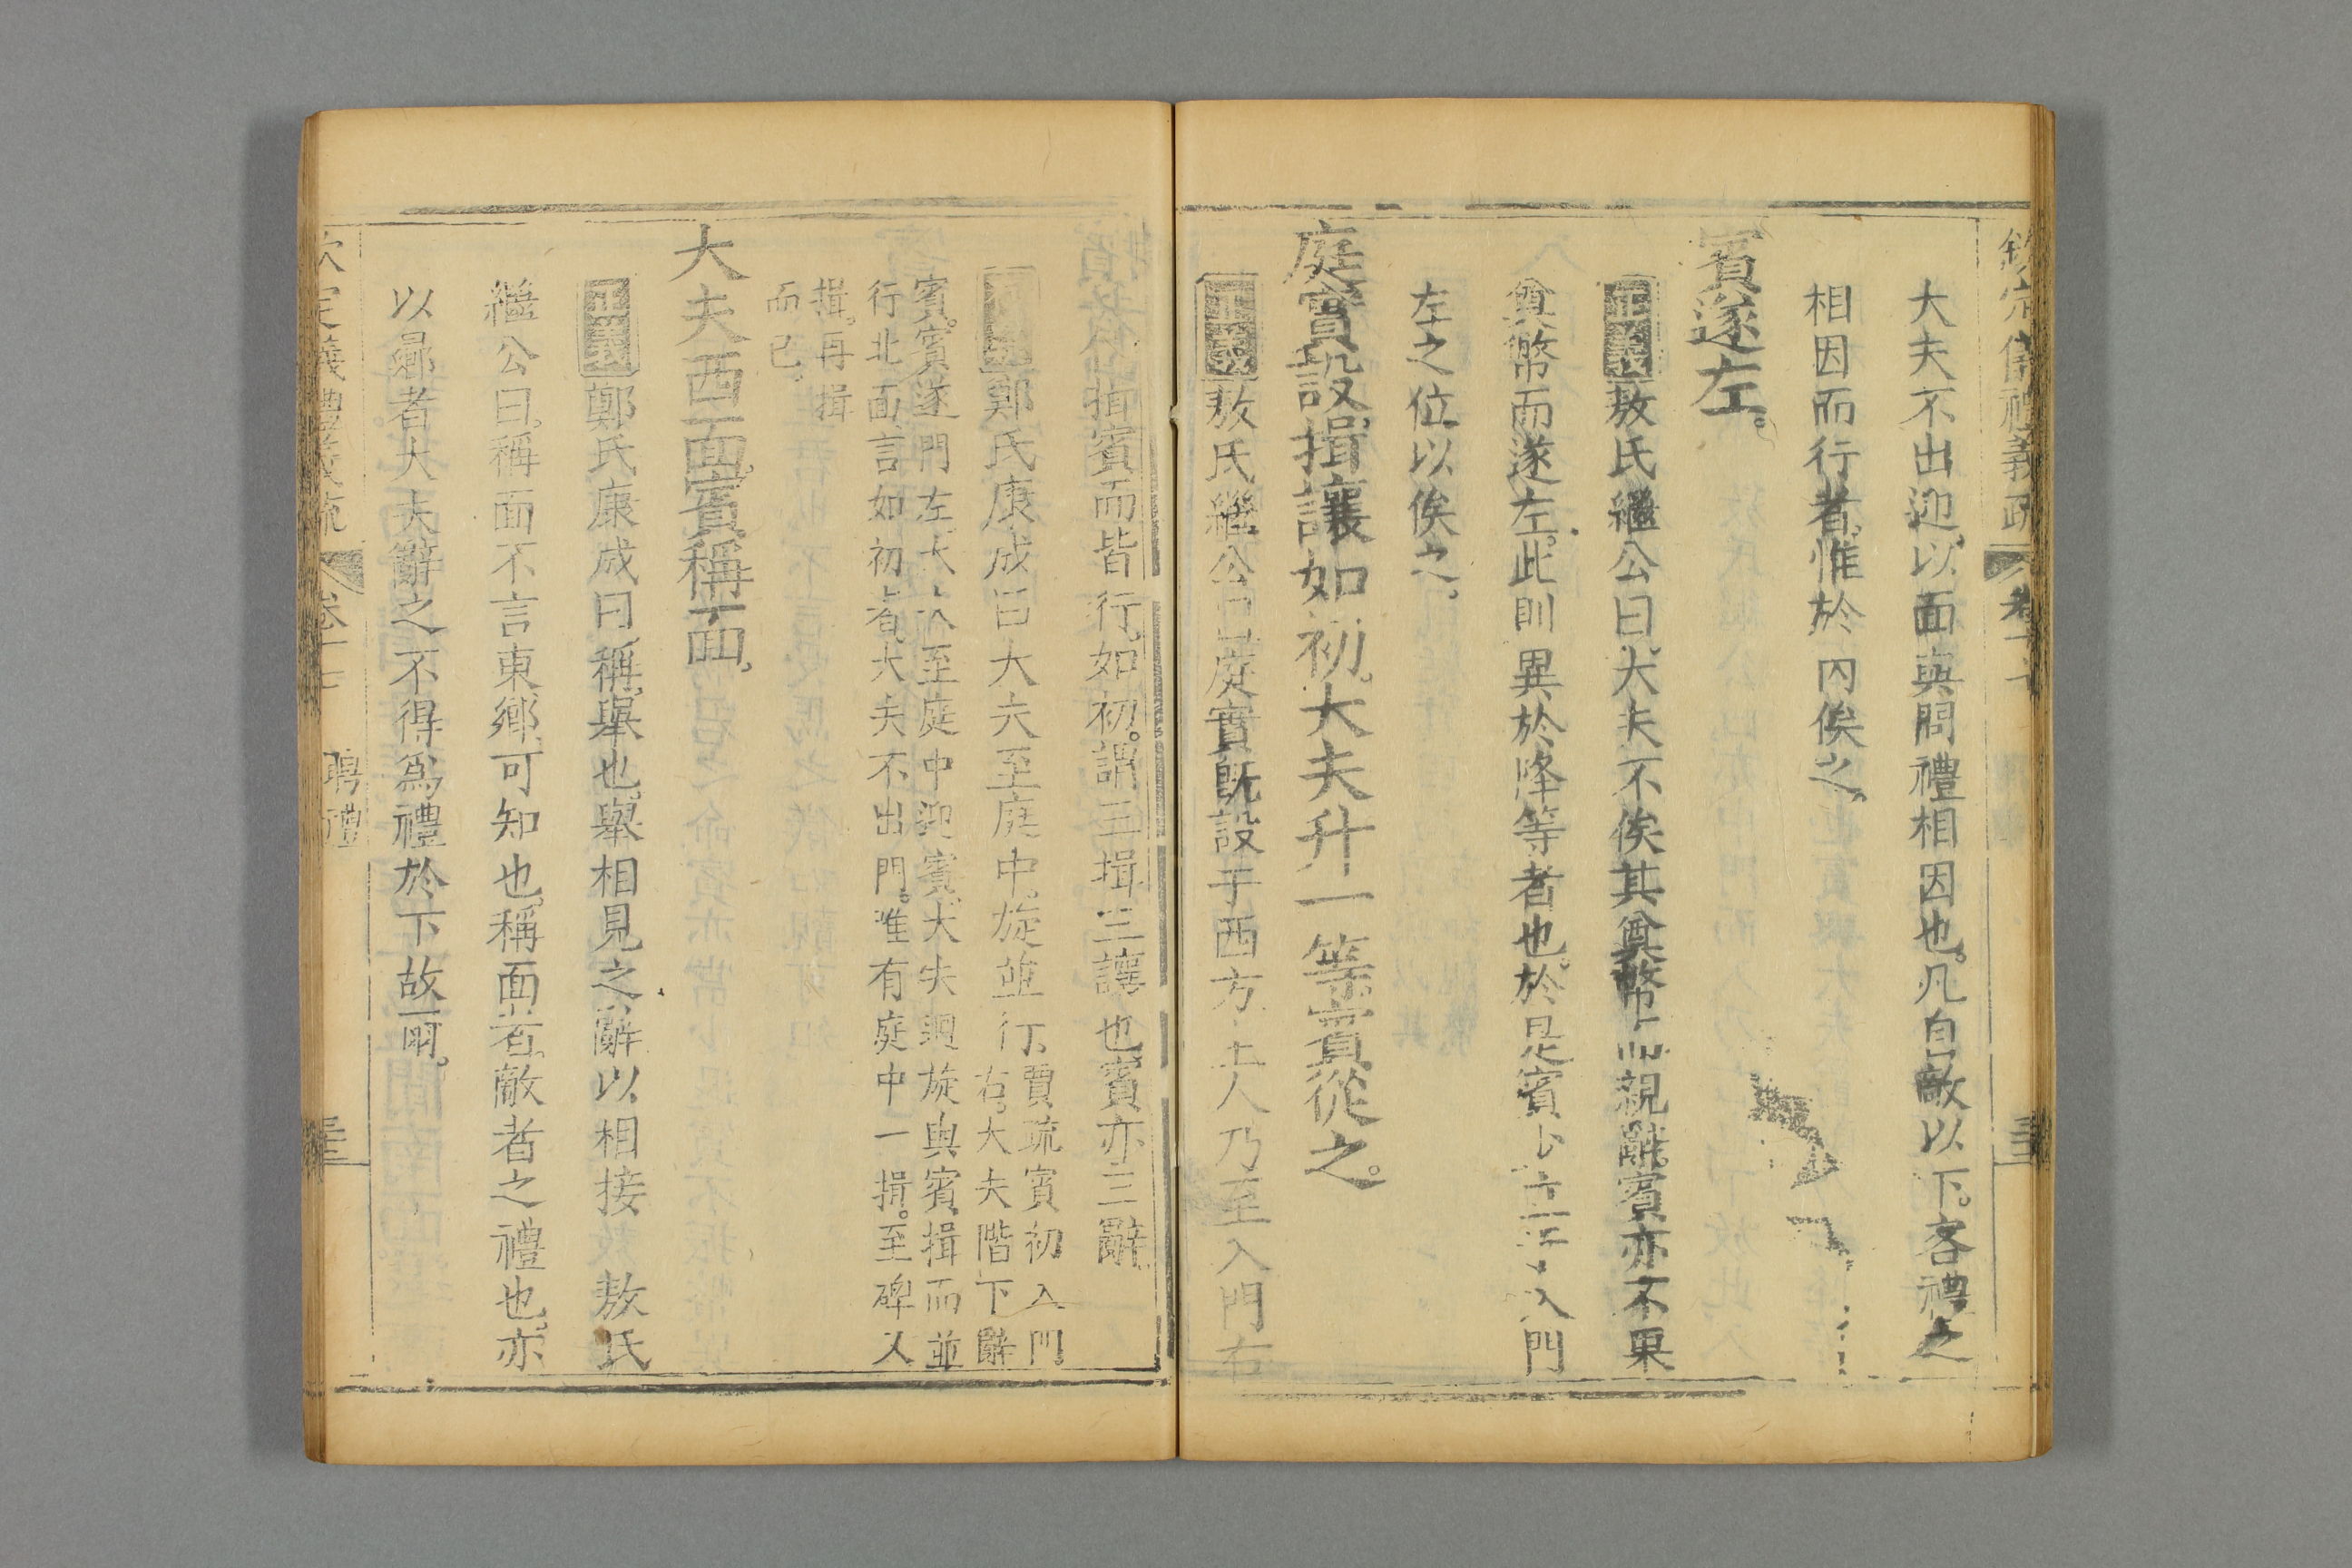 欽定儀禮義疏 卷十七
大夫不出迎以面與問禮相因也。凡自敵以下。客禮之
相因而行者惟於內俟之
賓遂左。
正義敖氏繼公曰大夫不俟其奠幣而親辭賓亦不果
奠幣而遂左。此則異於降等者也。於是賓少立于入門
左之位以俟之。
庭實設揖讓如初。大夫升一等賓從之。
正義敖氏繼公曰庭實旣設于西方士人乃至入門右
揖賓而皆行如初。謂三揖三讓也賓亦三辭
鄭氏康成曰大夫至庭中。旋並行 賈疏賓初入門
右。大夫階下辭
賓。賓遂門左大夫至庭中迎賓大夫迴旋與賓揖而並
行北面言如初者大夫不出門。唯有庭中一揖。至碑又
揖。再揖
而已。
大夫西面。賓稱面。
正義鄭氏康成曰稱舉也。舉相見之辭以相接 敖氏
繼公曰。稱面不言東鄉可知也。稱面者敵者之禮也。亦
以鄉者大夫辭之不得爲禮於下故爾。
欽定儀禮義疏 卷十七 聘禮